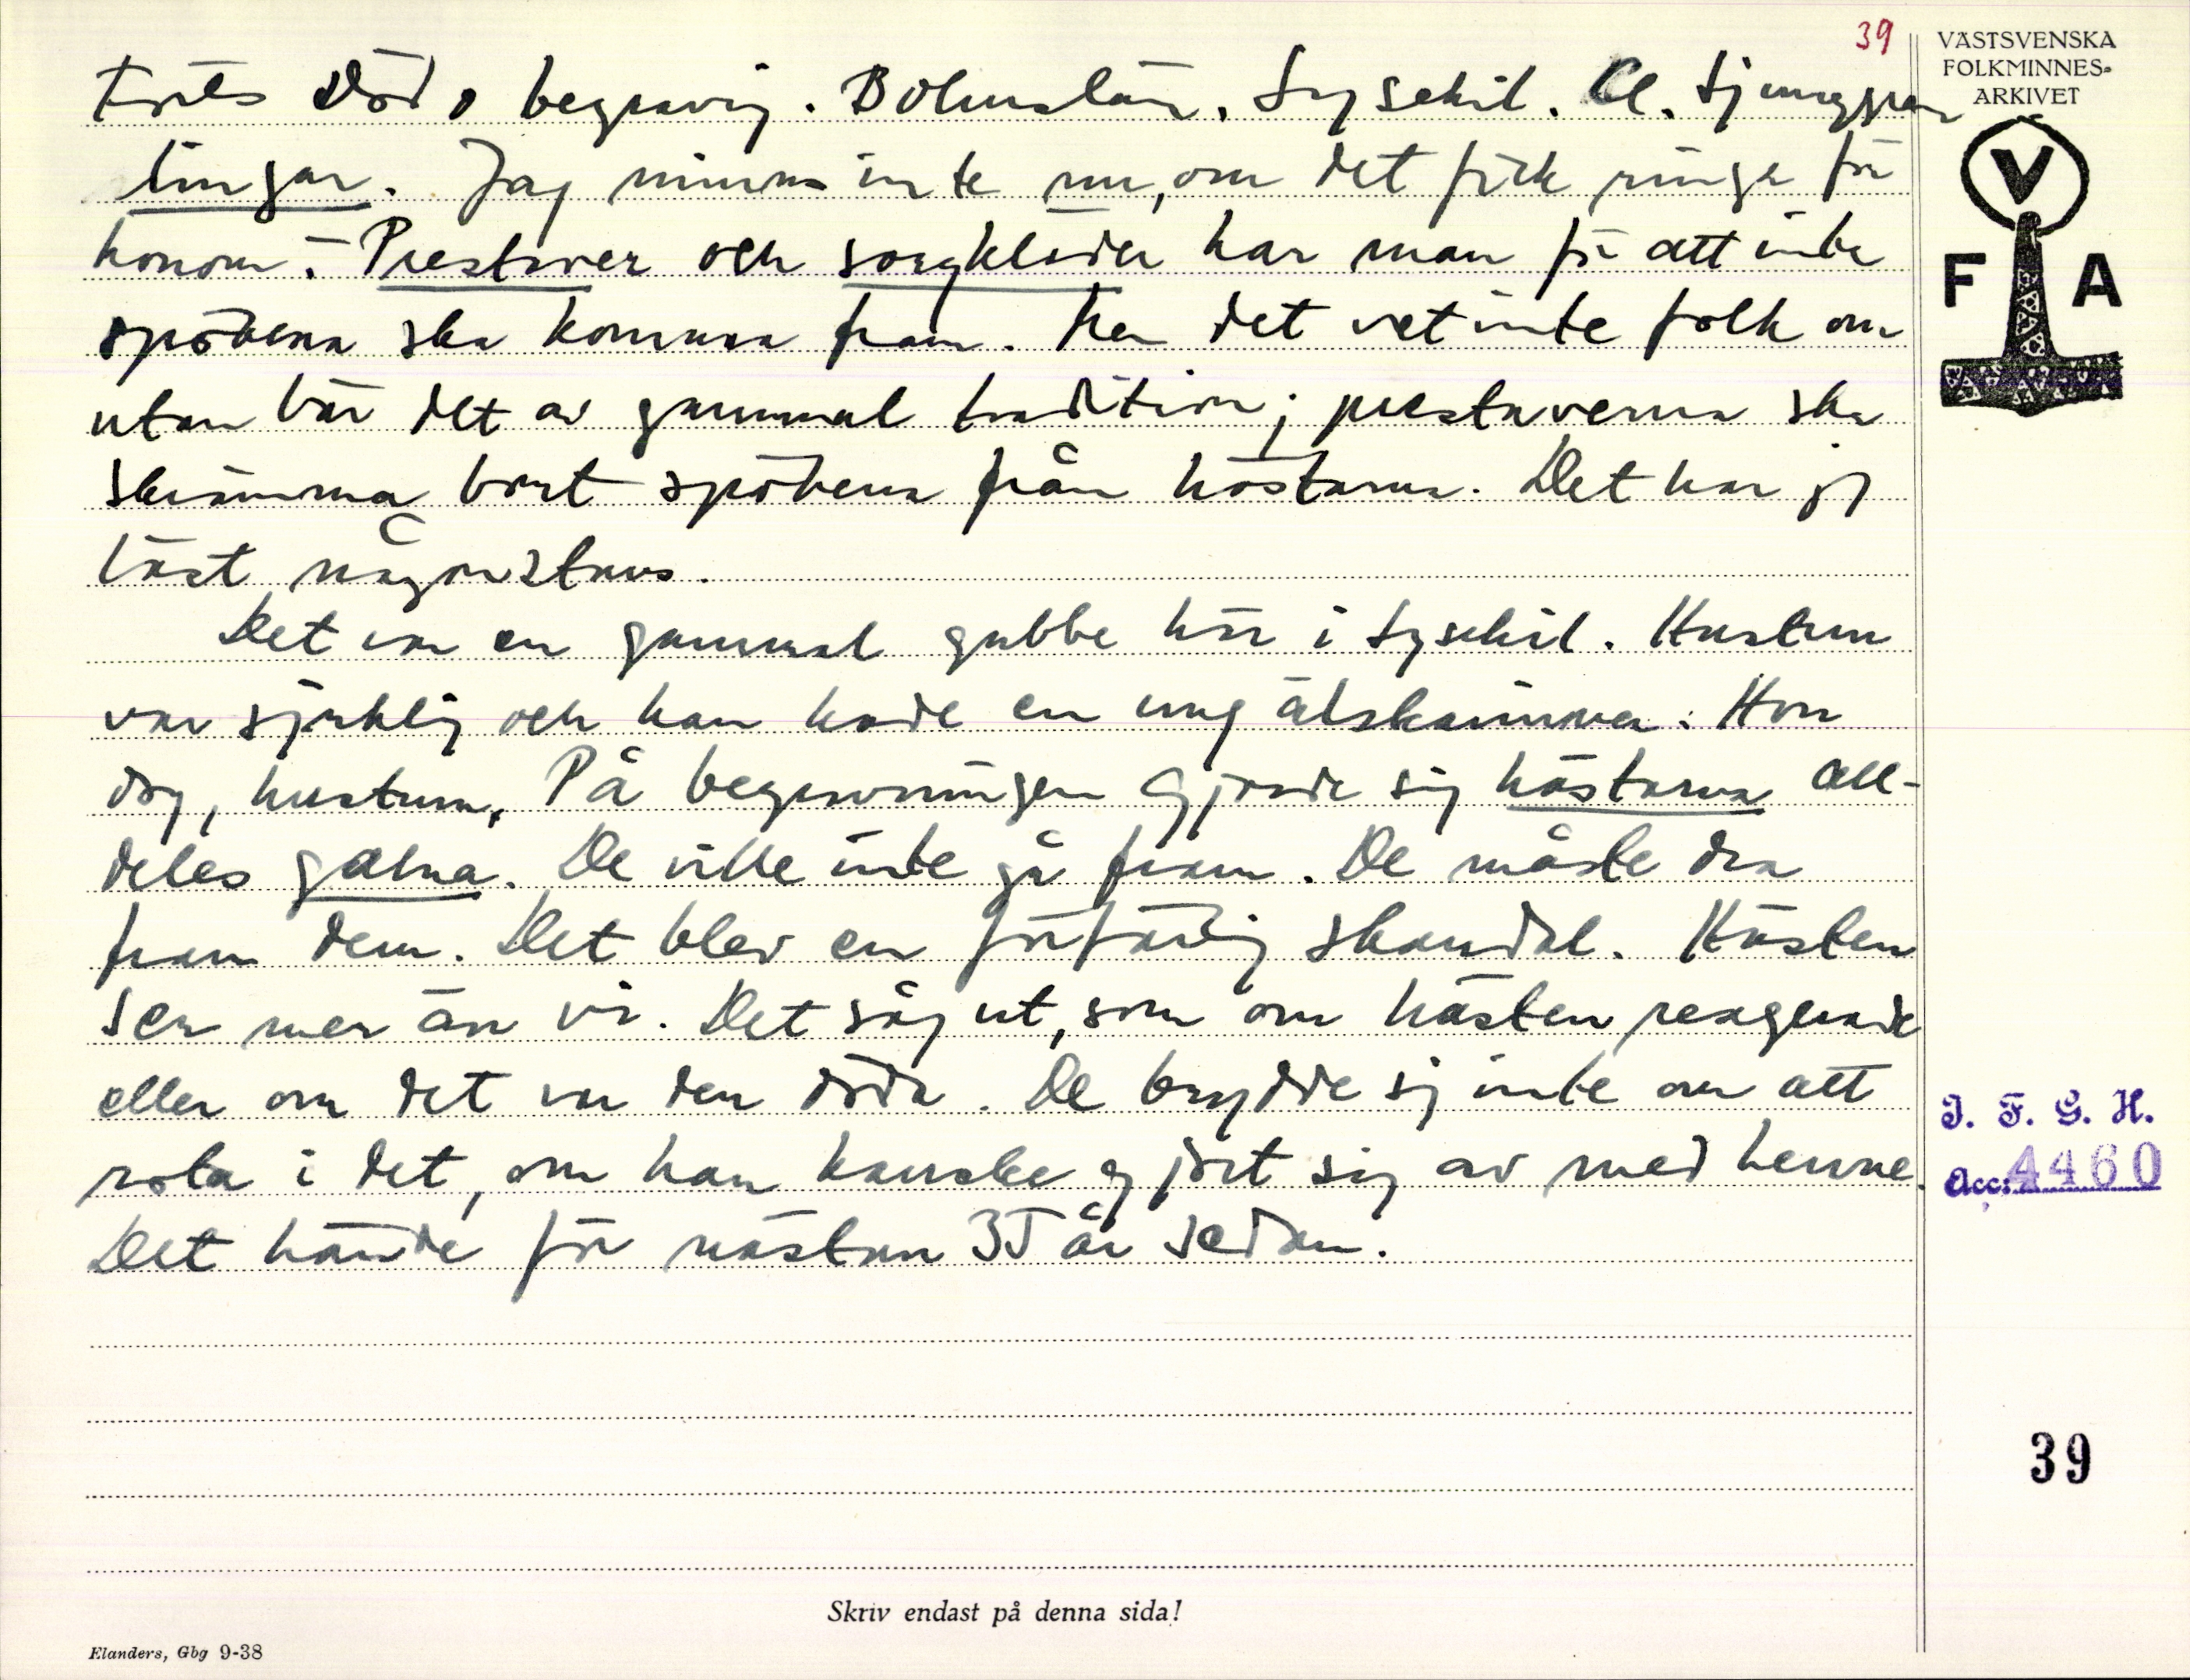 39
Forts Död o begravnig. Bohuslän. Lysekil. Cl. Ljunggren
lingar. Jag minns inte nu, om det fick ringa för
honom. Prestaver och sorgkläder har man för att inte
spökena ska komma fram. Men det vet inte folk om
utan bär det av gammal tradition; prestaverna ska
skrämma bort spökena från hästarna. Det har jg
läst någonstans.
Det var en gammal gubbe här i Lysekil. Hustrun
var sjuklig och han hade en ung älskarinna. Hon
dog, hustrun. På begravningen gjorde sig hästarna all-
deles galna. De ville inte gå fram. De måste dra
fram dem. Det blev en förfärlig skandal. Hästen
ser mer än vi. Det såg ut, som om hästen reagerade
eller om det var den döda. De brydde sig inte om att
rota i det, om han kanske gjort sig av med henne.
Det hände för nästan 35 år sedan.
VÄSTSVENSKA
FOLKMINNES-
ARKIVET
V
F A
I. F. G. H.
Acc. 4460
39
Skriv endast på denna sida!
Elanders, Gbg 9-38